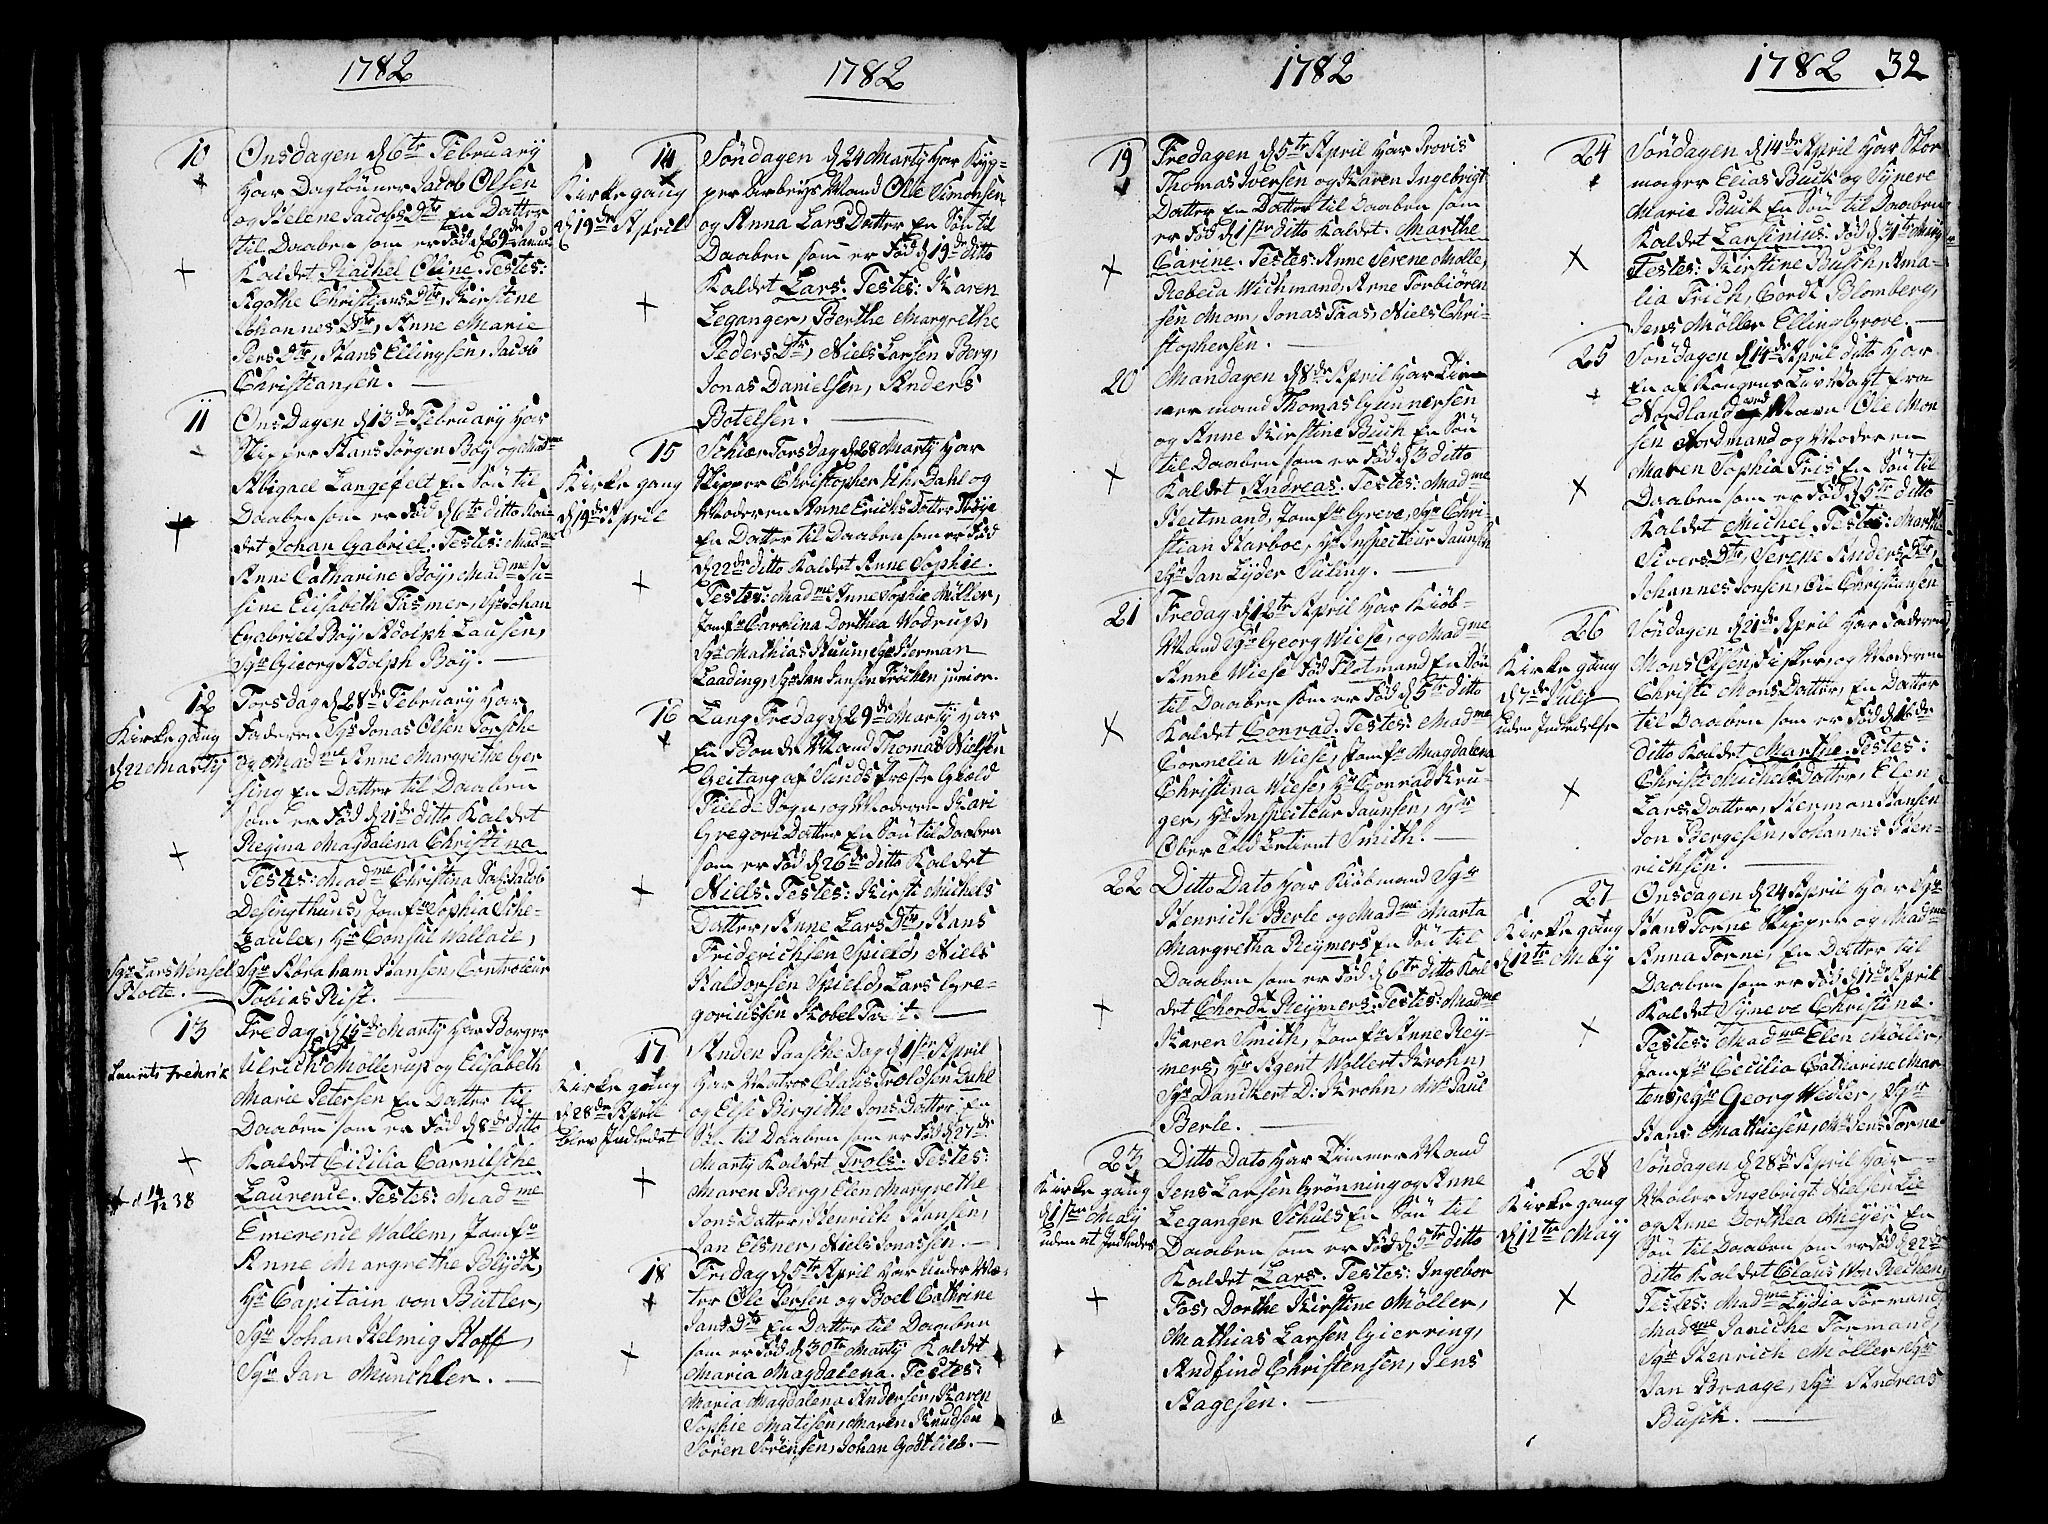 1782
10
Onsdagen d 6te February
har Daglønner Jacob Olsen
og Helene Jacobs Dtr En Datter
til Daaben som er Fød d 29de Januar
Kaldet Rachel Oline. Testes:
Agothe Christians Dtr, Kirstine
Johannes Dtr, Anne Marie
Pers Dtr, Hans Ellingsen, Jacob
Christiansen.
11
OnsDagen d 13de February har
Skipper Hans Jørgen Böy og Madme
Abigael Langefelt En Søn til
Daaben som er Fød d 6te ditto Kal-
det Johan Gabriel. Testes: Madme
Anne Catharine Böy, Madme Su-
sine Elisabeth Fasmer, Sgr Johan
Gabriel Böy, Adolph Lausen,
Sgr Gieorg Adolph Böy.
12
Kirke gang
d 22 Marty
Torsdag d 28de February har
Faderen Sgr Jonas Olsen Torsche
og Madme Anne Margrethe Ger-
sing En Datter til Daaben
som er Fød d 21de ditto Kaldet
Regina Magdalena Christina
Testes: Madme Christina Sal: Jacob
Desingthuns, Jomfr Sophia Sche-
, Hr Consul Wallace,
Sgr Lars Wensel
Holte.
Sgr Abraham Hansen, Controleur
Tobias Rist.
13
Laurits Fredrik
Fredag d 15de Marty har Borger
Ulrich Møllerup og Elisabeth
Marie Petersen En Datter til
Daaben som er Fød d 8de ditto
Kaldet Cicilia Carnilsche
Laurence. Testes: Madme
† d 14/12 38
Emerence Wallem, Jomfr
Anne Margrethe Blydt,
Hr Capitain von Butler,
Sgr Johan Helmig Hoff,
Sgr Jan Munchler.
1782
14
Kirke gang
d 19de April
Søndagen d 24 Marty har Kyp-
per Arbeyds Mand Ole Simonsen
og Anna Lars Datter En Søn til
Daaben som er Fød d 19de ditto
Kaldet Lars. Testes: Karen
Leganger, Berthe Margrethe
Peders Dtr, Niels Larsen Berg,
Jonas Danielsen, Anders
Botelsen.
15
Kirke gang
d 19de April
Schiær Torsdag d 28 Marty har
Skipper Christopher Dahl og
Moderen Anne Erichs Datter
En Datter til Daaben som er Fød
d 22de ditto Kaldet Anne Sophie.
Testes: Madme Anne Sophie Müller,
Jomfr Carolina Dorthea Wodrup,
Sgr Mathias Kuun, Sgr Herman
Laading, Sgr Jan Jansen Frichen junior.
16
Lang Fredag d 29de Marty har
En Bonde Mand Thomas Nielsen
Geitang af Sunds Præste Giæld
Fielde Sogn, og Moderen Kari
Gregori Datter En Søn til Daaben
som er Fød d 26de ditto Kaldet
Niels. Testes: Kirsti Michels
Datter, Anne Lars Dtr, Hans
Friderichsen Spield, Niels
Haldorsen Spield, Lars Gre-
goriussen Skobel Tveit.
17
Kirke gang
d 28de April
blev Indledet
Anden Paasche Dag d 1ste April
har Matros Claus Troldsen Dahl
og Else Birgithe Jons Datter En
Søn til Daaben som er Fød d 27de
Marty Kaldet Trols. Testes:
Maren Berg, Elen Margrethe
Jons Datter, Henrich Hansen,
Jan Elsner, Niels Jonassen.
18
Fridag d 5te April har Under Mæ-
ter Ole Larsen og Boel Cathrine
Jans Dtr En Datter til Daaben
som er Fød d 30te Marty Kaldet
Maria Magdalena. Testes:
Maria Magdalena Andersen, Karen
Sophie Matisen, Maren Knudsen
Søren Sørensen, Johan Godtlieb.
1782
19
Fredagen d 5te April har Provis
Thomas Iversen og Karen Ingebrigt
Datter En Datter til Daaben som
er Fød d 1ste ditto Kaldet. Marthe
Carine. Testes: Anne Serene Molle,
Rebeca Wichmand, Anne Torbiören
sen Mom, Jonas Faas, Niels Chri-
stophersen.
20
Mandagen d 8de April har Tim-
mer mand Thomas Gunnersen
og Anne Kirstine Buch En Søn
til Daaben som er Fød d 3 ditto
Kaldet Andreas. Testes: Madme
Heitmand, Jomfr Greve, Sgr Chri-
stian Harboe, Hr Inspecteur Jaunsen
Sgr Jan Lyder Süling.
21
Fredag d 12te April har Kiöb-
Mand Sgr Georg Wiese, og Madme
Anne Wiese Fød Flotmand En Søn
til Daaben som er Fød d 5te ditto
Kaldet Conrad. Testes: Madme
Cornelia Wiese, Jomfr Magdalena
Christina Wiese, Hr Conrad Kru-
ger, Hr Inspecteur Jaunsen, Hr
Ober Lietient Smith.
22
Ditto Dato har Kiöbmand Sgr
Henrich Berle og Madme Marta
Margretha Reymers En Søn til
Daaben som er Fød d 6te ditto Kal-
det Chordt Reymers. Testes: Madme
Karen Smith, Jomfr Anne Rey-
mers, Hr Agent Wollert Krohn,
Sgr Danckert D: Krohn, Mr Paul
Berle.
23
Kirke gang
d 1ste May
uden at Indledes
Ditto Dato har Timmer Mand
Jens Larsen Grönning og Anne
Leganger Schuls En Søn til
Daaben som er Fød d 5te ditto
Kaldet Lars. Testes: Ingebor
Fos, Dorthe Kirstine Möller,
Mathias Larsen Gierring,
Andfind Christensen, Jens
Hagesen.
1782 32
24
Søndagen d 14de April har Skoe
mager Elias Buch og Syneve
Marie Buch En Søn til Daaben
Kaldet Larsinius. Fød d 31te Marty
Testes: Kirstine Busch, Ama-
lia Frich, Cordt Blomberg,
Jens Möller Elling Grove.
25
Søndagen d 14de April ditto har
En af Kongens Liv Vagt fra
Nordland ved Navn Ole Mon
sen Nordmand og Moderen
Maren Sophia Friis En Søn til
Daaben som er Fød d 5te ditto
Kaldet Michel. Testes: Marthe
Sivers Dtr, Serene Anders Dtr,
Johannes Jonsen, Ole Christensen
26
Kirke gang
d 7de July
uden Indledelse
Søndagen d 21de April har Faderen
Mons Olsen Fisker, og Moderen
Christi Mons Datter, En Datter
til Daaben som er Fød d 16de
ditto Kaldet Marthe. Testes:
Christi Michels Datter, Elen
Lars Datter, Herman Hansen
Jon Børgesen, Johannes Hen-
richsen.
27
Kirke gang
d 12te May
Onsdagen d 24 April har Sgr
Hans Torne Skipper og Madme
Anna Torne, En Datter til
Daaben som er Fød d 17de April
Kaldet Syneve Christine.
Testes: Madme Elen Møller,
Jomfr Cecilia Catharine Mar-
tens, Sgr Georg Weiler, Sgr
Hans Mathiesen, Mr Jens Torne
28
Kirke gang
d 12te May
Søndagen d 28de April har
Maler Ingebrigt Nielsen Lie
og Anne Dorthea Meyer En
Søn til Daaben som er Fød d 22de
ditto Kaldet Claus Von Rechen,
Testes: Madme Lydia Formand,
Madme Janiche Formand,
Sgr Henrich Möller, Sgr
Jan Braage, Sgr Andreas
Busch.